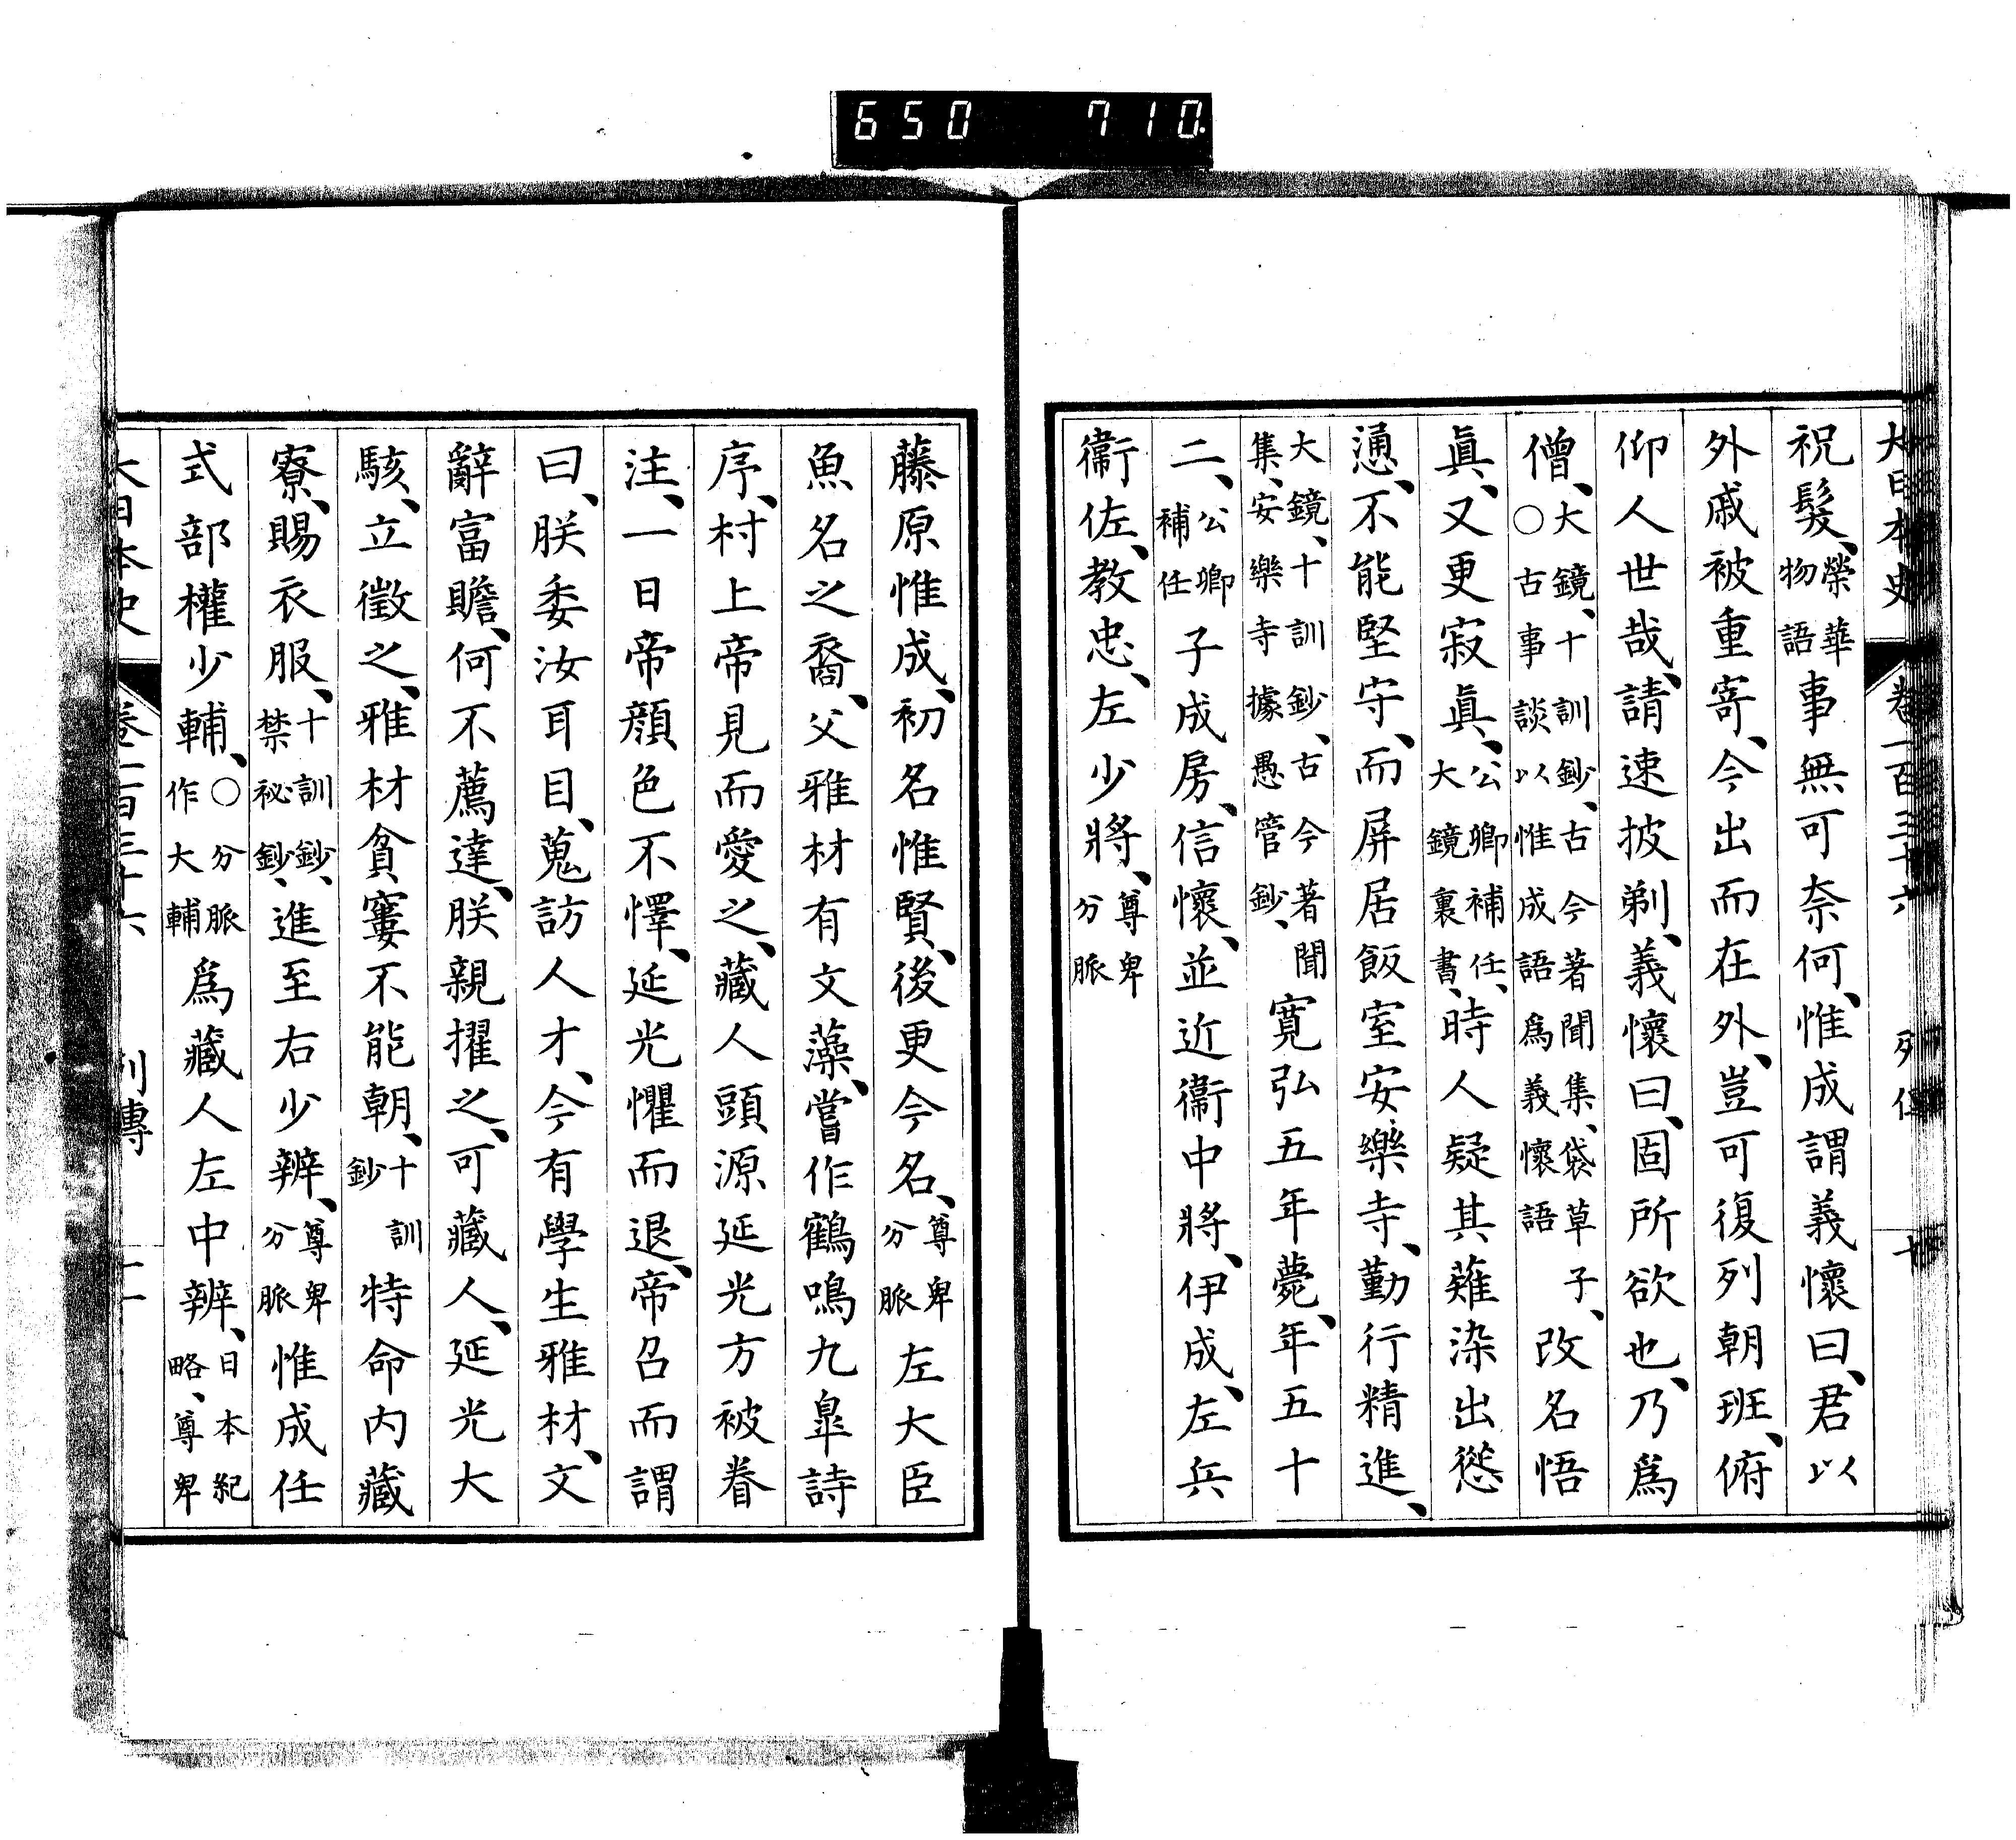 650 710.
大日本史 卷一百三十六 列傳
祝髮、榮華物語事無可奈何、惟成謂義懷曰、君以
外戚被重寄、今出而在外、豈可復列朝班、俯
仰人世哉、請速披剃、義懷曰、固所欲也、乃爲
僧、大鏡、十訓鈔、古今著聞集、袋草子、○古事談以惟成語爲義懷語改名悟
眞、又更寂眞、公卿補任、大鏡裏書、時人疑其薙染出慫
慂、不能堅守、而屏居飯室安樂寺、勤行精進、
大鏡、十訓鈔、古今著聞集、安樂寺據愚管鈔、寬弘五年薨、年五十
二、公卿補任子成房、信懷、並近衞中將、伊成、左兵
衞佐、教忠、左少將、尊卑分脈
藤原惟成、初名惟賢、後更今名、尊卑分脈左大臣
魚名之裔、父雅材有文藻、嘗作鶴鳴九皐詩
序、村上帝見而愛之、藏人頭源延光方被眷
注、一日帝顏色不懌、延光懼而退、帝召而謂
曰、朕委汝耳目、蒐訪人才、今有學生雅材、文
辭富贍、何不薦達、朕親擢之、可藏人、延光大
駭、立徵之、雅材貧窶不能朝、十訓鈔特命内藏
寮、賜衣服、十訓鈔、禁祕鈔、進至右少辨、尊卑分脈惟成任
式部權少輔、○分脈作大輔爲藏人左中辨、日本紀略、尊卑
大日本史 卷一百三十六 列傳 十一